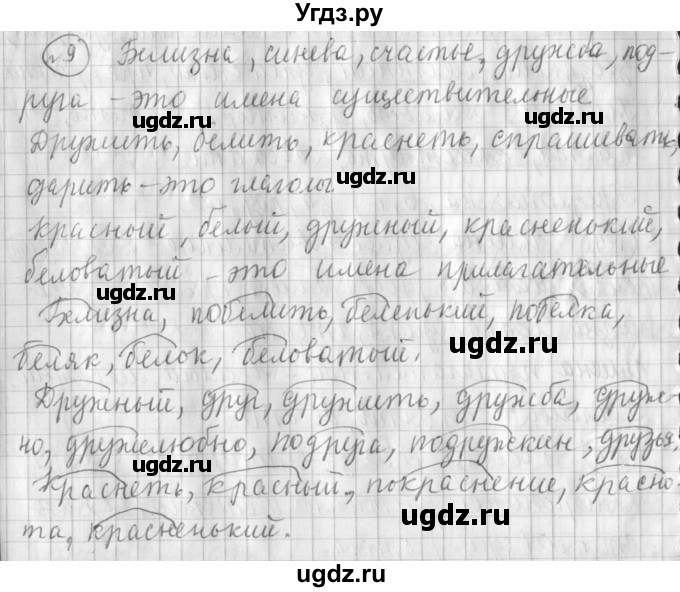 Угдз.ру
№9 Белизна, синева, счастье, дружба, под-
руга – это имена существительные
ugdz.ru ugdz.ru
Дружить, белить, краснеть, спрашивать,
дарить – это глаголы
ugdz.ru
Красный, белый, дружный, красненький,
беловатый – это имена прилагательные
ugdz.ru
Белизна, побелить, беленький, побелка,
беляк, белок, беловатый.
ugdz.ru
Дружный, друг, дружить, дружба, друж-
но, дружелюбно, подруга, подружкин, друзья.
ugdz.ru ugdz.ru
Краснеть, красный, покраснение, красно-
та, красненький.
ugdz.ru
ugdz.ru